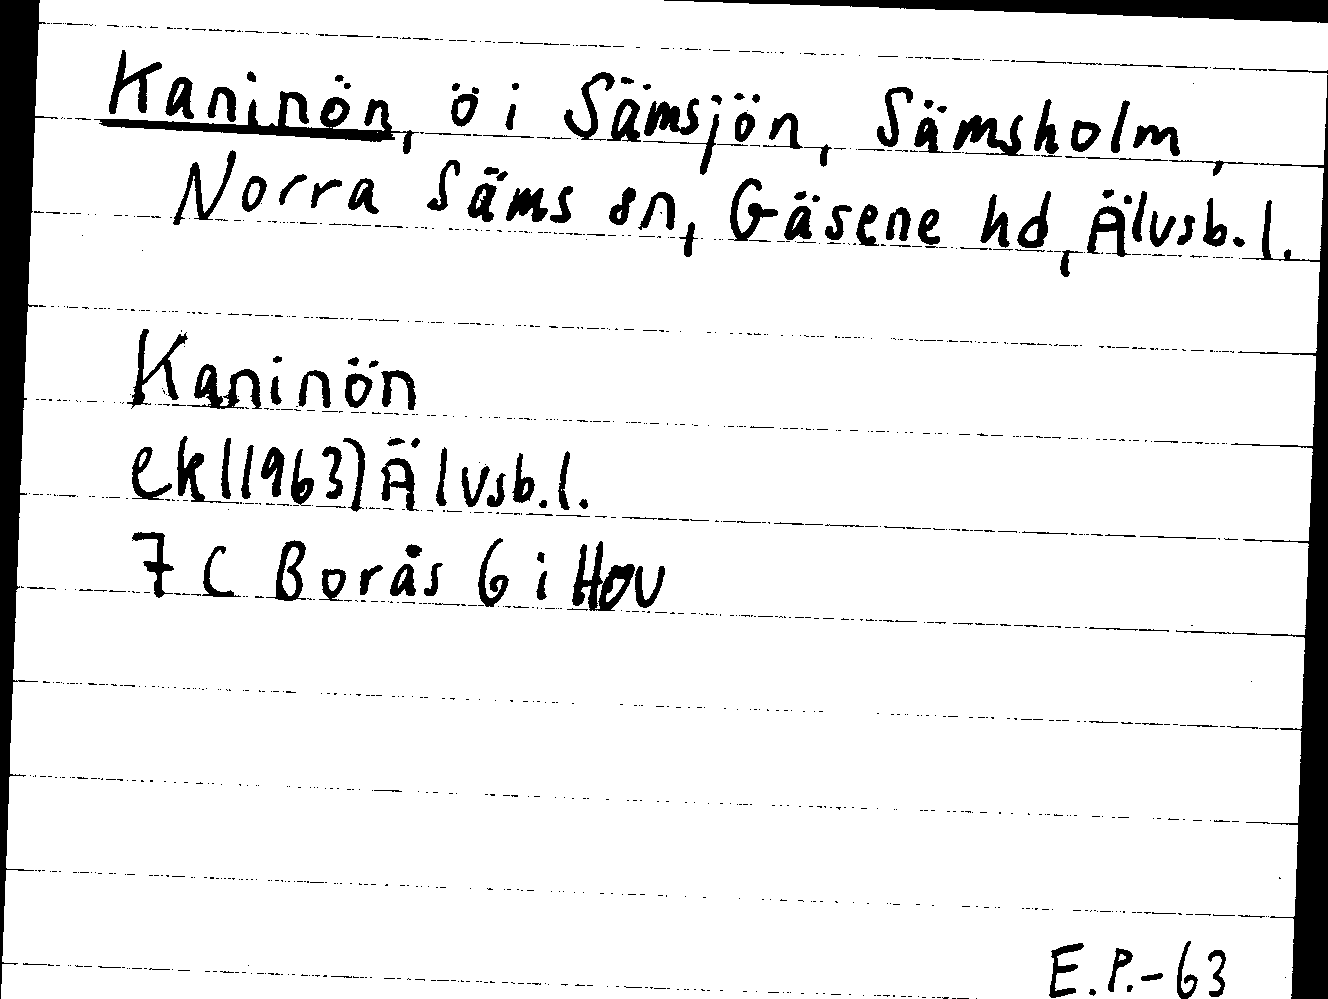 Kaninön, ö i Sämsjön, Sämsholm,
Norra Säms sn, Gäsene hd, Älvsb. l.
Kaninön
ek (1963) Älvsb. l.
7 C Borås 6 i Hov
E.P.-63